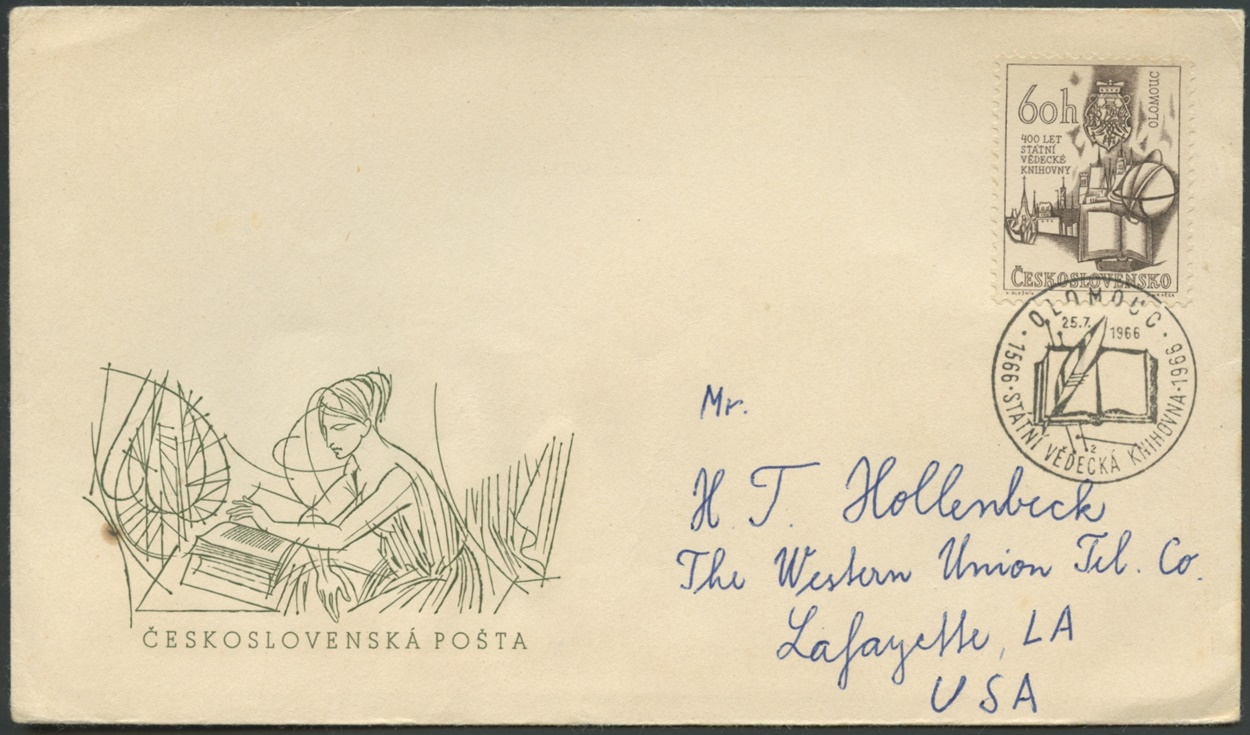 60h
OLOMOUC
400 LET
STÁTNÍ
VĚDECKÉ
KNIHOVNY
ČESKOSLOVENSKO
OLOMOUC
25.7. 1966
1566 · STÁTNÍ VĚDECKÁ KNIHOVNA · 1966
2
Mr.
H. T. Hollenbeck
The Western Union Tel. Co.
Lafayette, LA
USA
ČESKOSLOVENSKÁ POŠTA